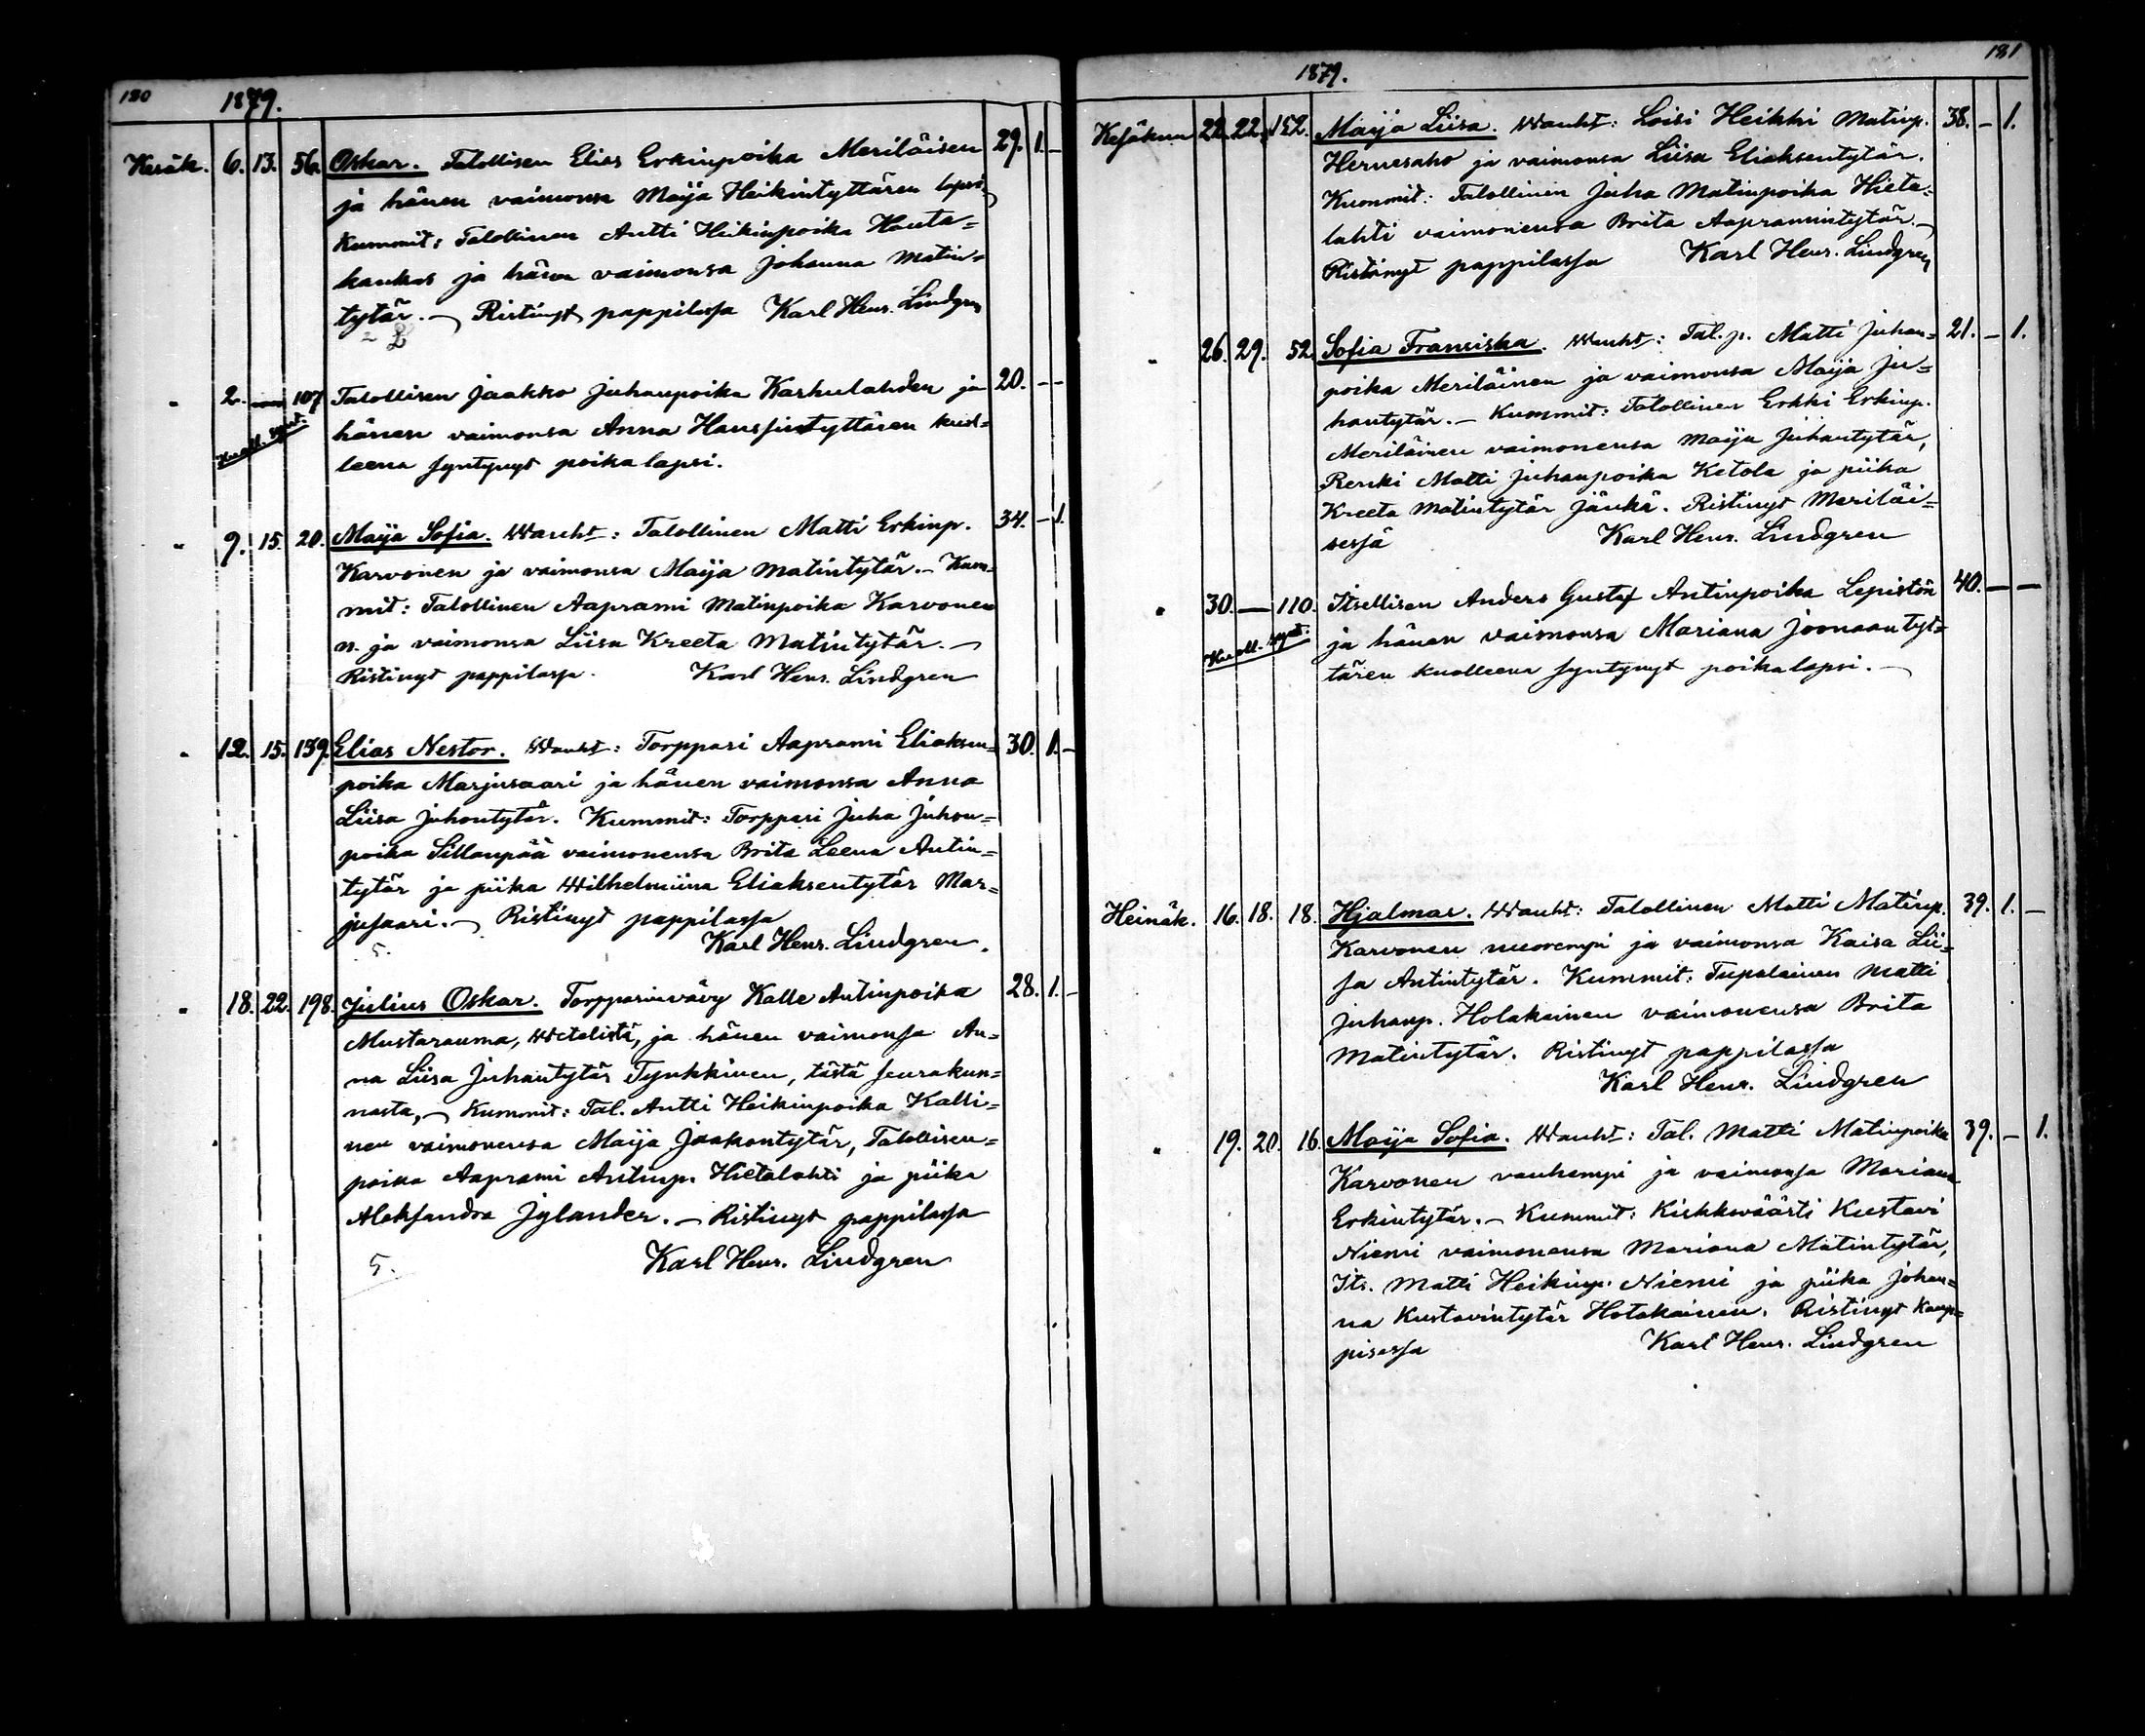 180
1879.
Kesäk. 6. 13. 56. Oskar. Talollisen Elias Erkinpoika Meriläisen 29. 1. –
ja hänen vaimonsa Maija Heikintyttären lapsi,
Kummit: Talollinen Antti Heikinpoika Hauta=
kankas ja hänen vaimonsa Johanna Matin=
tytär. – Ristinyt pappilassa Karl Henr. Lindgren
" 2. — 107 Talollisen Jaakko Juhanpoika Karhulahden ja 20. – –
Kuoll. synt.
hänen vaimonsa Anna Hanssintyttären kuol=
leena syntynyt poikalapsi.
" 9. 15. 20. Maija Sofia. Wanht: Talollinen Matti Erkinp. 34. – 1.
Karvonen ja vaimonsa Maija Matintytär. – Kum=
mit: Talollinen Aaprami Matinpoika Karvonen
n. ja vaimonsa Liisa Kreeta Matintytär. –
Ristinyt pappilassa. Karl Henr. Lindgren
" 12. 15. 139. Elias Nestor. Wanht: Torppari Aaprami Eliaksen= 30. 1. –
poika Marjusaari ja hänen vaimonsa Anna
Liisa Juhontytär. Kummit: Torppari Juha Juhon=
poika Sillanpää vaimonensa Brita Leena Antin=
tytär ja piika Wilhelmiina Eliaksentytär Mar=
jusaari. – Ristinyt pappilassa
5. Karl Henr. Lindgren.
" 18. 22. 198. Julius Oskar. Torpparinvävy Kalle Antinpoika 28. 1. –
Mustarauma, Wetelistä, ja hänen vaimonsa An=
na Liisa Juhantytär Tynkkinen, tästä seurakun=
nasta, – Kummit: Tal. Antti Heikinpoika Kalli=
nen vaimonensa Maija Jaakontytär, Talollisen=
poika Aaprami Antinp. Hietalahti ja piika
Aleksandra Jylander. – Ristinyt pappilassa
5. Karl Henr. Lindgren
181
1879.
Kesäkuu 22. 22. 152. Maija Liisa. Wanht: Loisi Heikki Matinp. 38. – 1.
Hernesaho ja vaimonsa Liisa Eliaksentytär.
Kummit: Talollinen Juha Matinpoika Hieta=
lahti vaimonensa Brita Aapramintytär. –
Ristinyt pappilassa Karl Henr. Lindgren
" 26. 29. 52. Sofia Fransiska. Wanht: Tal.p. Matti Juhan= 21. – 1.
poika Meriläinen ja vaimonsa Maija Ju=
hantytär. – Kummit: Talollinen Erkki Erkinp.
Meriläinen vaimonensa Maija Juhantytär,
Renki Matti Juhanpoika Ketola ja piika
Kreeta Matintytär Jänkä. Ristinyt Meriläi=
sessä Karl Henr. Lindgren
" 30. — 110. Itsellisen Anders Gustaf Antinpoika Lepistön 40. — —
Kuoll. synt.
ja hänen vaimonsa Mariana Joonaantyt=
tären kuolleena syntynyt poikalapsi. –
Heinäk. 16. 18. 18. Hjalmar. Wanht: Talollinen Matti Matinp. 39. 1. –
Karvonen nuorempi ja vaimonsa Kaisa Lii=
sa Antintytär. Kummit: Tupalainen Matti
Juhanp. Holakainen vaimonensa Brita
Matintytär. Ristinyt pappilassa
Karl Henr. Lindgren
" 19. 20. 16. Maija Sofia. Wanht: Tal. Matti Matinpoika 39. – 1.
Karvonen vanhempi ja vaimonsa Mariana
Erkintytär. – Kummit: Kirkkwäärti Kustavi
Niemi vaimonensa Mariana Matintytär,
Its. Matti Heikinp. Niemi ja piika Johan=
na Kustavintytär Hotakainen. Ristinyt Kaup=
pisessa Karl Henr. Lindgren